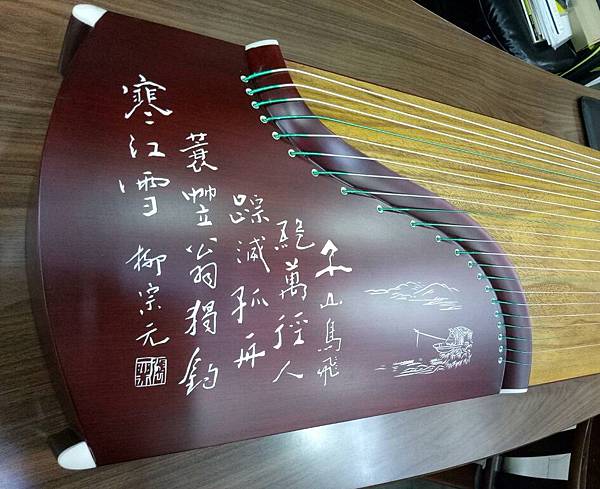 千山鳥飛
絕萬徑人
踪滅孤舟
蓑笠翁獨釣
寒江雪
柳宗元